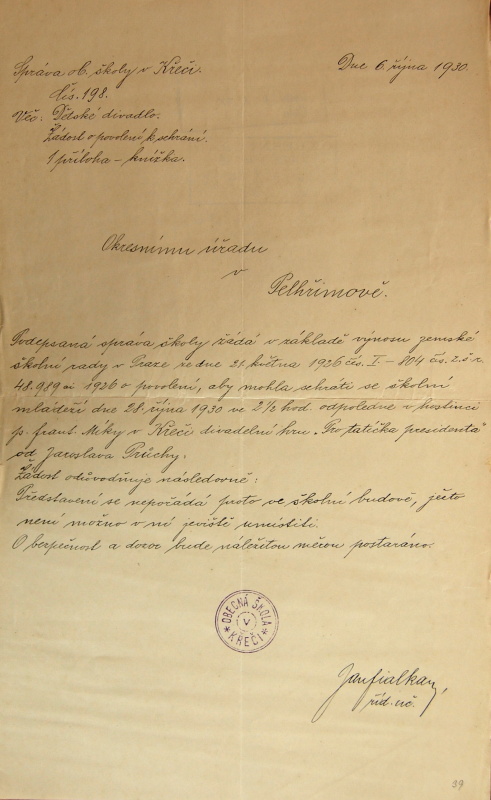 Správa ob. školy v Křeči.
Dne 6. října 1930.
čís. 198.
Věc: Dětské divadlo.
Žádost o povolení k sehrání.
1 příloha – knížka.
Okresnímu úřadu
v
Pelhřimově.
Podepsaná správa školy žádá v základě výnosu zemské
školní rady v Praze ze dne 21. května 1926 čís. I – 804 čís. z. š. r.
48.989 ai 1926 o povolení, aby mohla sehráti se školní
mládeží dne 28. října 1930 ve 2½ hod. odpoledne v hostinci
p. Frant. Míky v Křeči divadelní hru „Pro tatíčka presidenta"
od Jaroslava Průchy.
Žádost odůvodňuje následovně:
Představení se nepořádá proto ve školní budově, ježto
není možno v ní jeviště umístiti.
O bezpečnost a dozor bude náležitou měrou postaráno.
OBECNÁ ŠKOLA
V
KŘEČI
Jan Fialka
říd. uč.
39